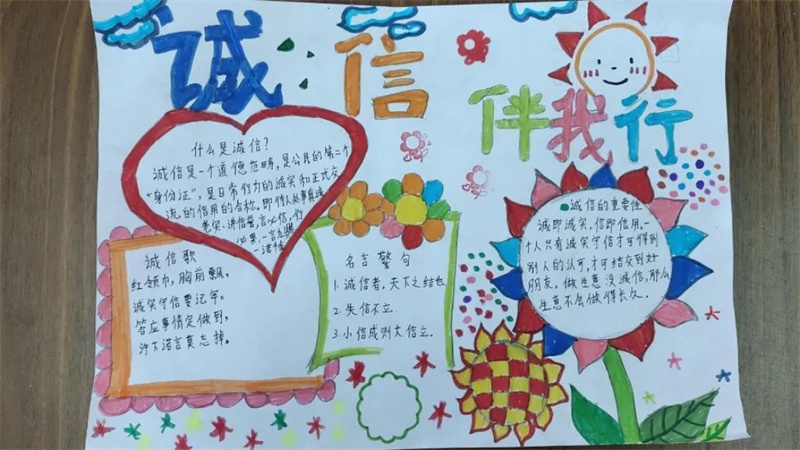 诚信
伴我行
什么是诚信?
诚信是一个道德范畴,是公民的第二个
"身份证",是日常行为的诚实和正式交
流的信用的合称。即待人处事真诚
老实、讲信誉,言必信,行
必果,一言九鼎
一诺千
诚信歌
红领巾,胸前飘,
诚实守信要记牢。
答应事情定做到,
许下诺言莫忘掉。
名言警句
1.诚信者,天下之结也
2.失信不立
3.小信成则大信立.
诚信的重要性
诚即诚实,信即信用。一
个人只有诚实守信才可得到
别人的认可,才可结交到好
朋友,做生意没诚信,那么
生意不会做得长久.